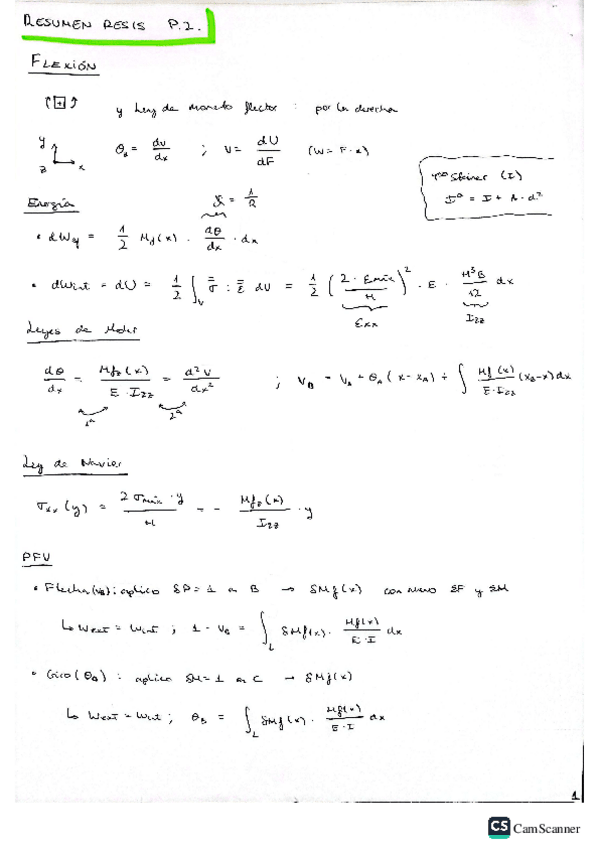 RESUMEN RESIS P.2.
FLEXIÓN
y Ley de momento flector : por la derecha
y
z x
θz = dv/dx ; V = dU/dF (W = F·x)
Tma Steiner (I)
I^0 = I + A·d²
Energía
ϰ = 1/R
• dWMf = 1/2 Mf(x) · dθ/dx · dx
• dWint = dU = 1/2 ∫_V σ̿ : ε̿ dV = 1/2 (2·Emáx/H)² · E · H³B/12 dx
Exx Izz
Leyes de Mohr
dθ/dx = Mfz(x)/(E·Izz) = d²V/dx² ; VB = VA + θA(x-xA) + ∫ Mf(x)/(E·Izz) (xB-x)dx
1ª 2ª
Ley de Navier
σxx(y) = 2σmáx·y/H = - Mfz(x)/Izz · y
PFV
• Flecha(vB): aplico δP=1 en B → δMf(x) con nuevo ΣF y ΣM
↳ Wext = Wint ; 1·VB = ∫_L δMf(x) · Mf(x)/(E·I) dx
• Giro(θB) : aplico δM=1 en C → δMf(x)
↳ Wext = Wint ; θB = ∫_L δMf(x) · Mf(x)/(E·I) dx
1
CS CamScanner